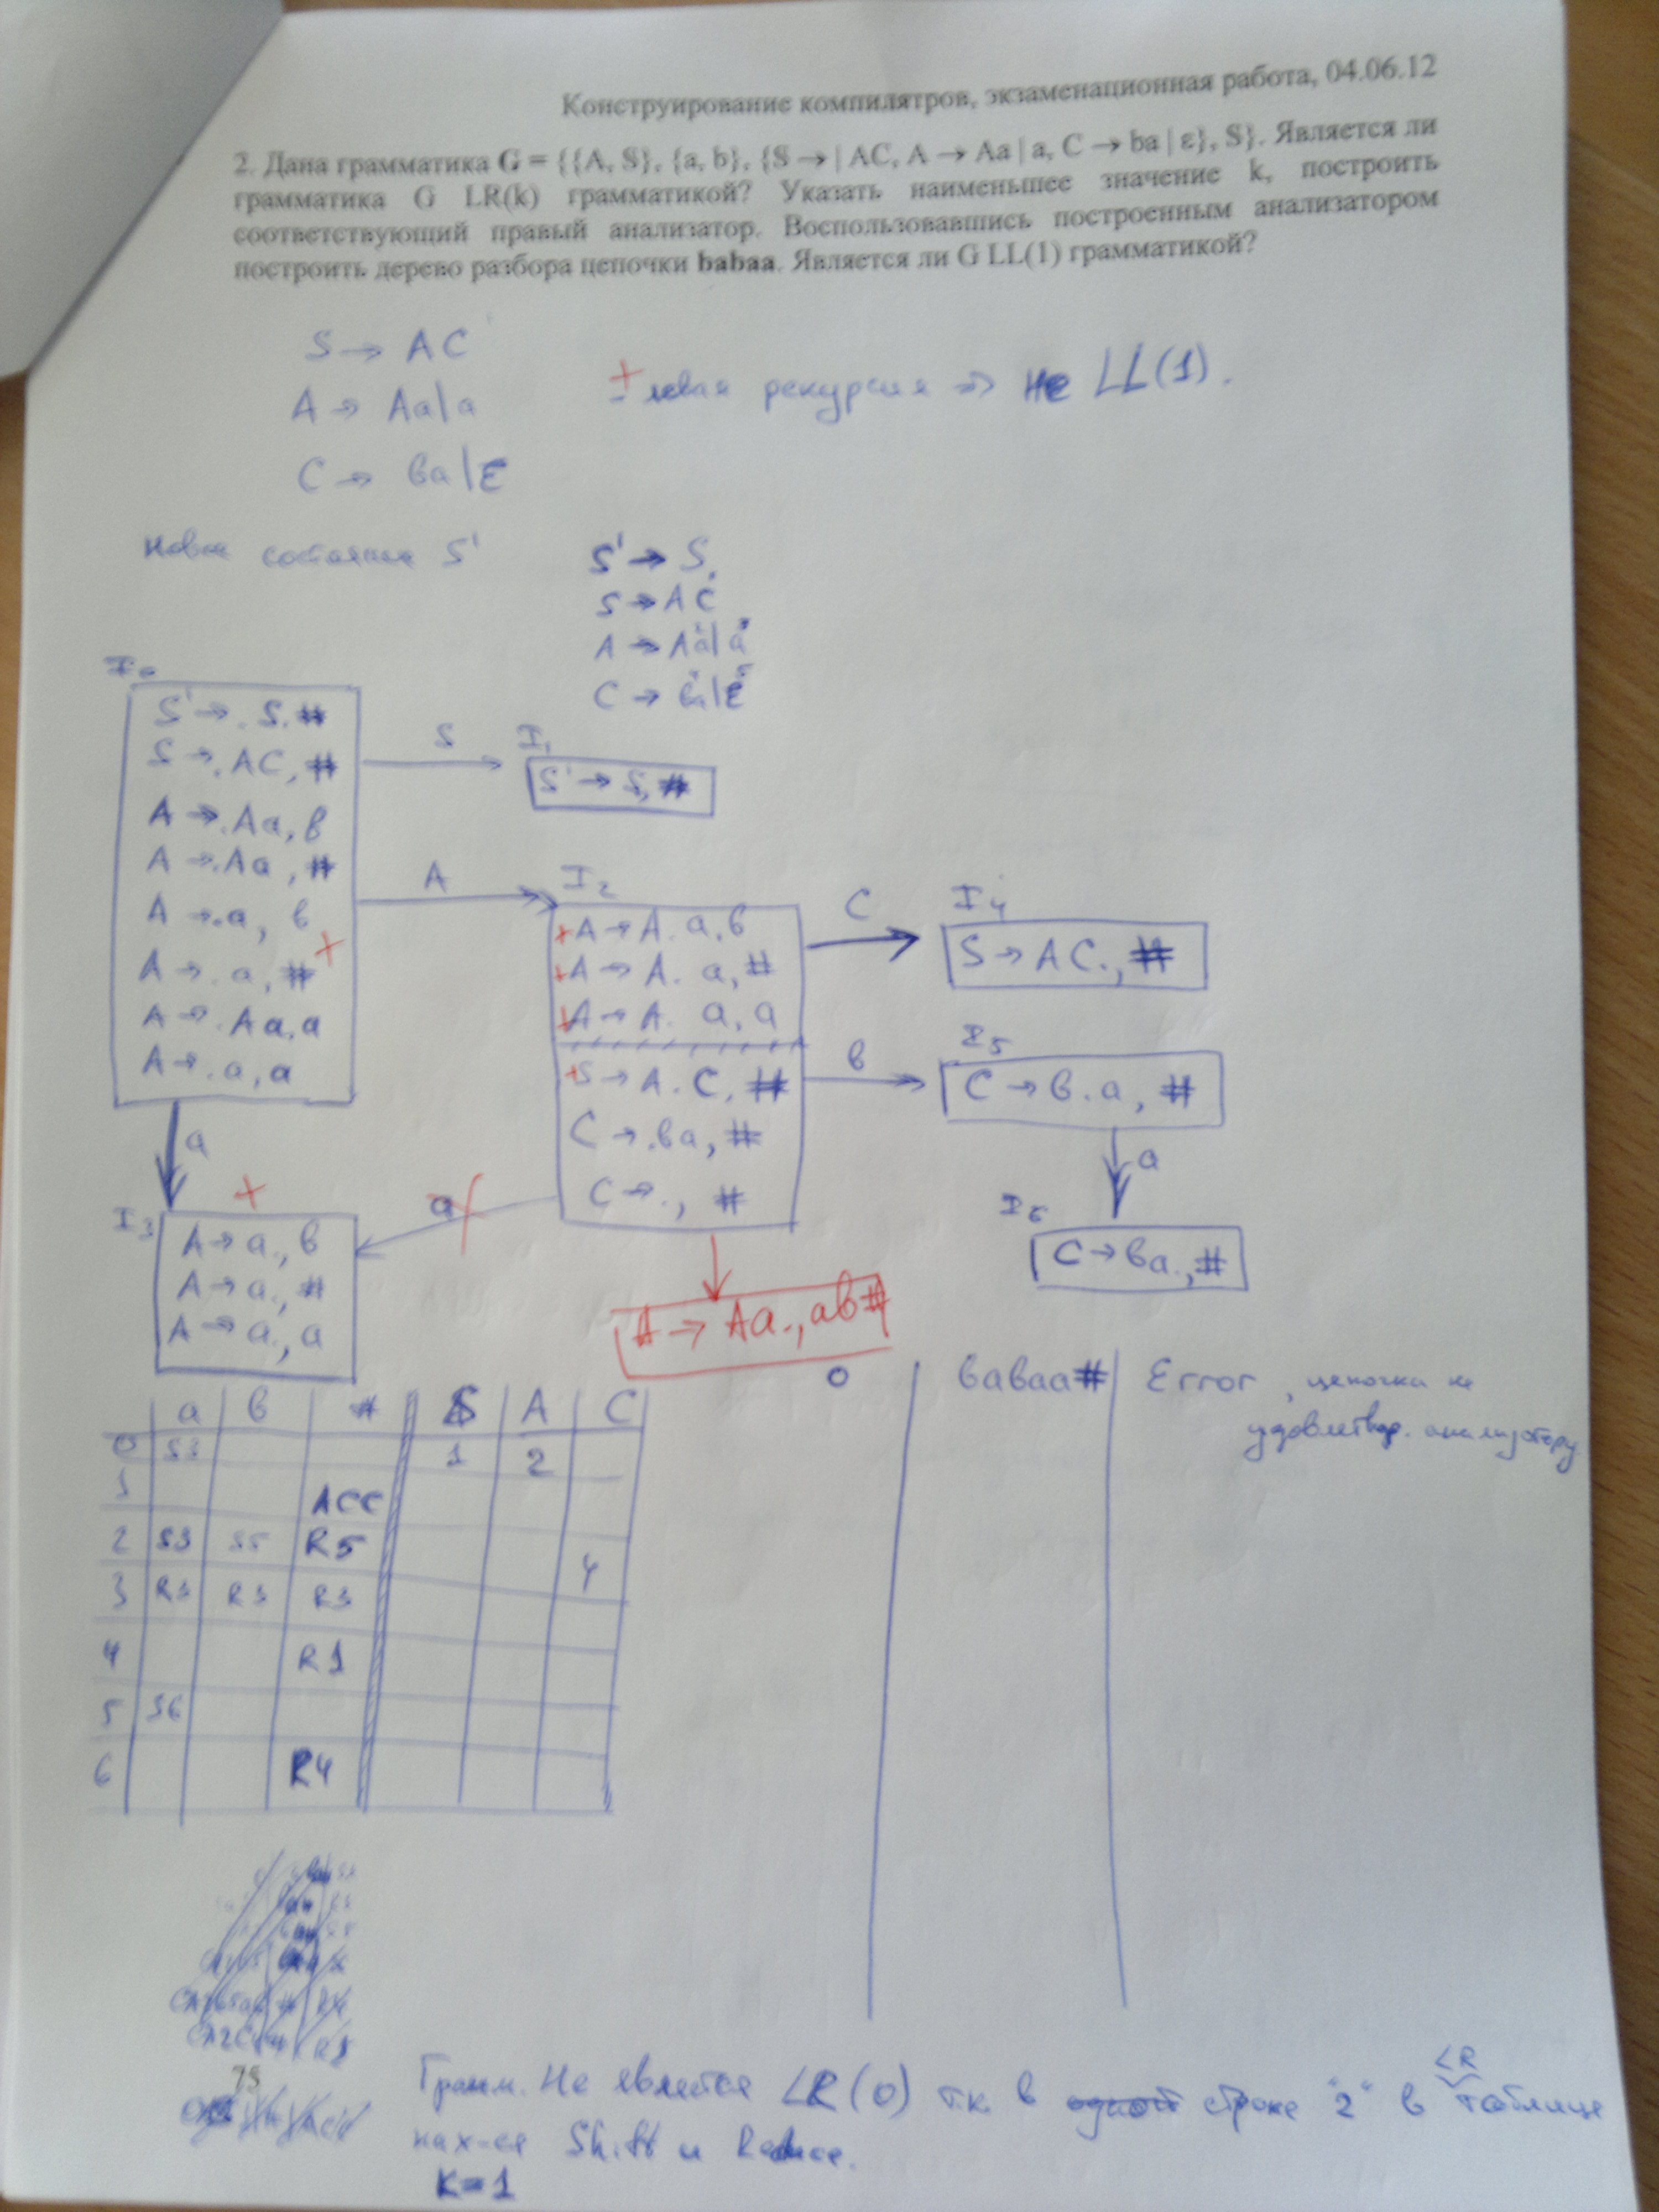 Конструирование компилятров, экзаменационная работа, 04.06.12
2. Дана грамматика G = {{A, S}, {a, b}, {S → | AC, A → Aa | a, C → ba | ε}, S}. Является ли
грамматика G LR(k) грамматикой? Указать наименьшее значение k, построить
соответствующий правый анализатор. Воспользовавшись построенным анализатором
построить дерево разбора цепочки babaa. Является ли G LL(1) грамматикой?
S → AC
A → Aa|a
C → ba|ε
± левая рекурсия => не LL(1).
Новое состояние S'
S' → S
S → AC
A → Aa|a
C → ba|ε
I0
S' → .S, #
S → .AC, #
A → .Aa, b
A → .Aa, #
A → .a, b
A → .a, # +
A → .Aa, a
A → .a, a
S
I1
S' → S, #
A
I2
+A → A. a, b
+A → A. a, #
+A → A. a, a
+S → A. C, #
C → .ba, #
C → ., #
C
I4
S → AC., #
b
I5
C → b.a, #
a
I6
C → ba., #
a
+
I3
A → a., b
A → a., #
A → a., a
a
A → Aa., ab#
a b # S A C
0 S3 1 2
1 ACC
2 S3 S5 R5 4
3 R3 R3 R3
4 R1
5 S6
6 R4
0 babaa# Error, цепочка не
удовлетвор. анализатору
75
Грамм. Не является LR(0) т.к. в строке "2" в LR таблице
нах-ся Shift и Reduce.
K=1